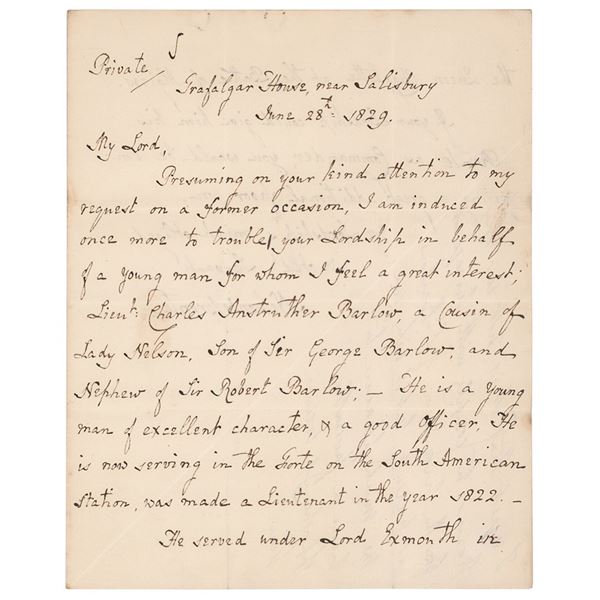 Private
Trafalgar House, near Salisbury
June 28th 1829.
My Lord,
Presuming on your kind attention to my
request on a former occasion, I am induced
once more to trouble your Lordship in behalf
of a young man for whom I feel a great interest;
Lieut: Charles Anstruther Barlow, a Cousin of
Lady Nelson, Son of Sir George Barlow, and
Nephew of Sir Robert Barlow; — He is a young
man of excellent character, & a good Officer, He
is now serving in the Forte on the South American
station, was made a Lieutenant in the year 1822. —
He served under Lord Exmouth in